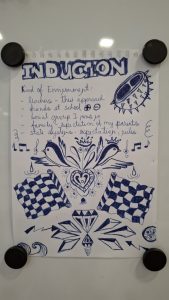 INDUCTION
Kind of Environment:
- teachers - their approach
- friends at school
- social group I was in
- family - reputation of my parents
- state systems - expectation, rules